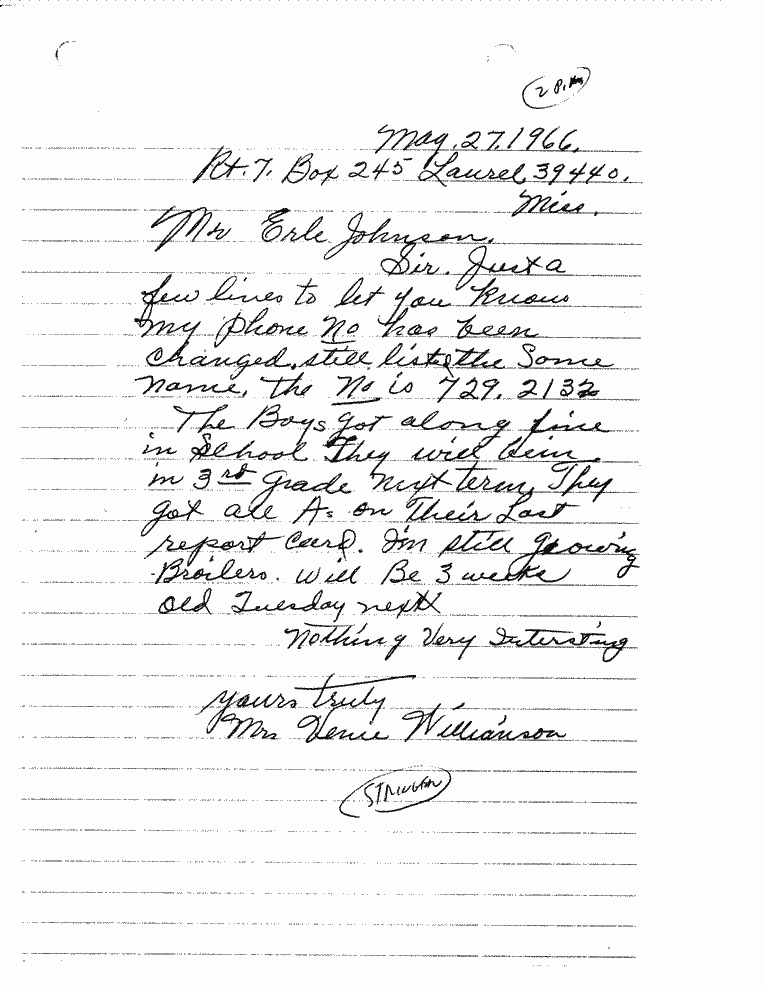 May. 27. 1966.
Rt. 7. Box 245 Laurel, 39440.
Miss.
Mr Erle Johnson.
Sir. Just a
few lines to let you know
my phone No has been
changed, still listed the Same
name, the No is 729. 2132
The Boys got along fine
in School They will be in
in 3rd Grade next term, They
got all A's on Their Last
report Card. I'm still growing
Broilers. will Be 3 weeks
old Tuesday next
Nothing Very Intersting
yours truly
Mrs Williamson